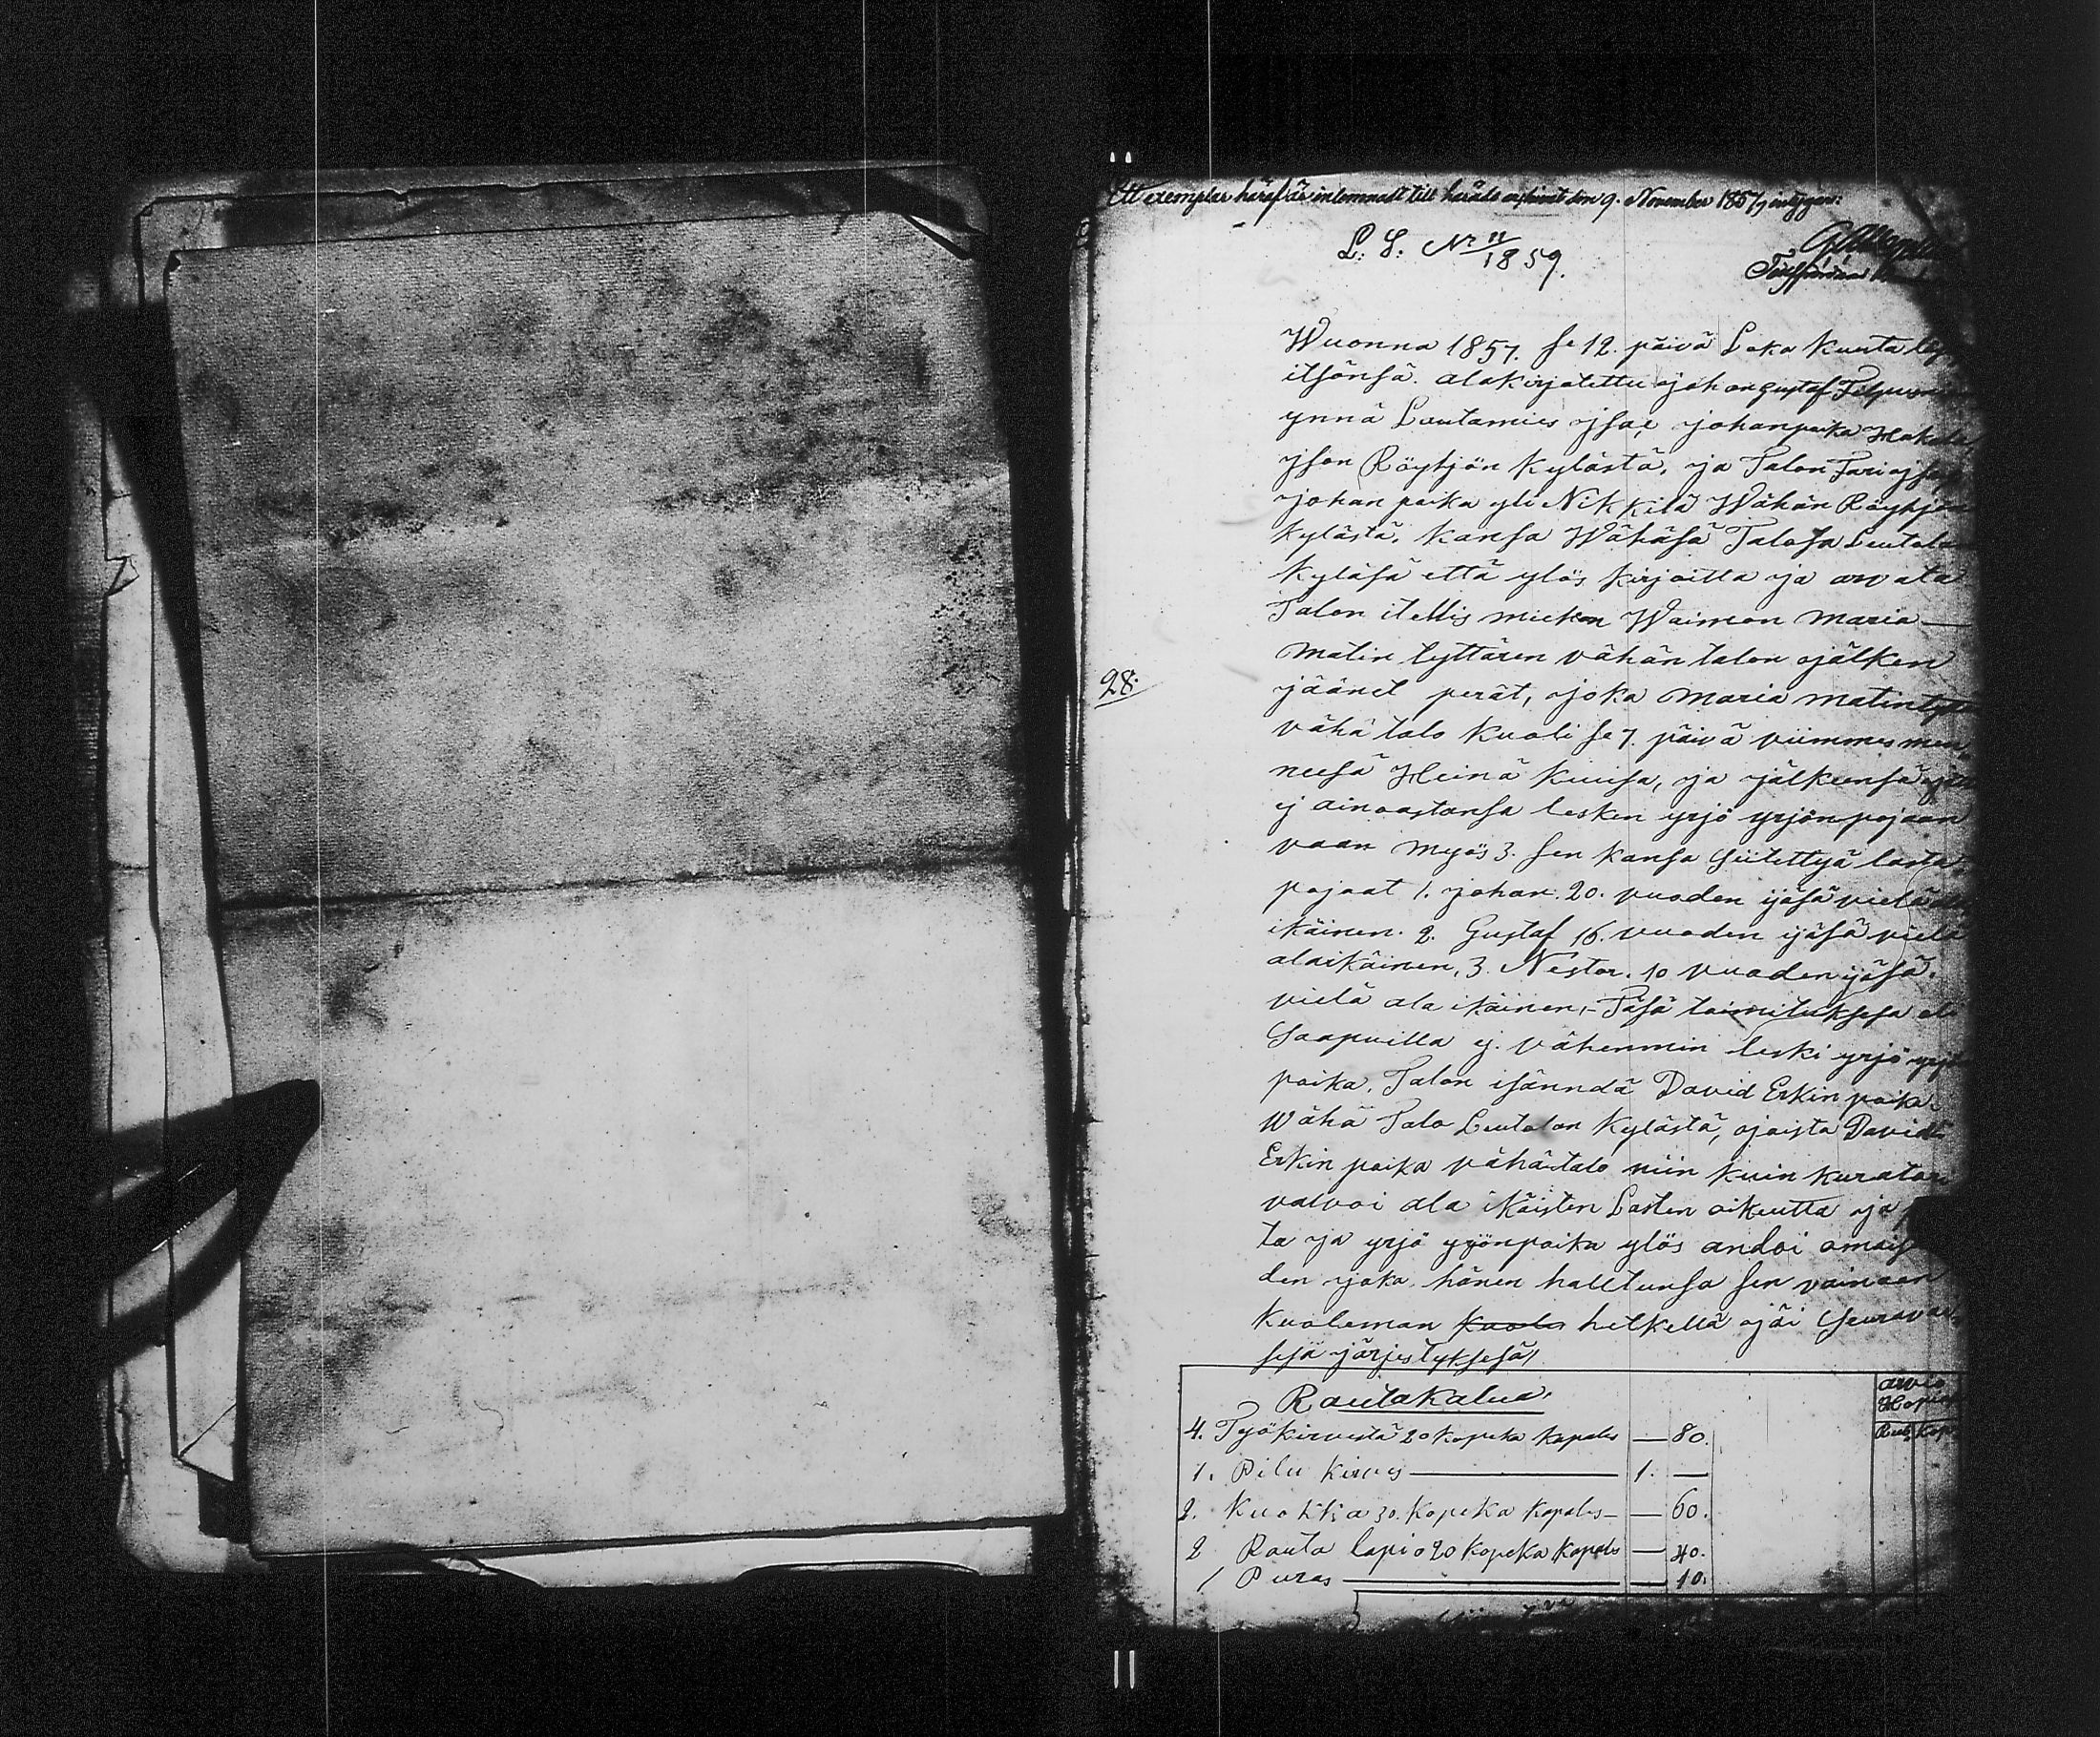 Ett exemplar häraf är inlemnadt till härads arkivet den 9. November 1857, intygar:
L. S. No 11/1859.
Wuonna 1857. se 12. päivä Loka Kuuta
itsänsä. alakirjotettu johan Gustaf
ynnä Lautamies johan poika Hakala
Röykjön Kylästä, ja Talon
johan poika yli Nikkilä Wähän Röykjön
Kylästä, kansa Wähäsä Talosa Leutolan
Kyläsä että ylös kirjoitta ja arvata
Talon itellis miehen Waimon Maria —
Matin tyttären vähän talon jälken
28. jäänet perät, joka Maria Matin
vähä talo Kuoli se 7. päivä viimmes men
neesä Heinä Kuusa, ja jälkeensä
ej ainoastansa lesken yrjö yrjönpojaan
vaan myös 3. sen kansa Siitettyä lasta
pojaat 1. johan. 20. vuoden ijäsä vielä
ikäinen. 2. Gustaf 16. vuoden ijäsä vielä
alaikäinen, 3. Nestor. 10 vuoden ijäsä.
vielä ala ikäinen,- Täsä toimituksesa oli
Saapuilla ej. vähenmin leski yrjö
poika. Talon isänndä David Erkin poika.
Wähä Talo Leutolan Kylästä, joista David
Erkin poika vähätalo niin kuin kuratori
valvoi ala ikäisten Lasten oikeutta ja
ta ja yrjö yrjönpoika ylös andoi
den joka hänen halltunsa sen vainaan
Kuoleman hetkellä jäi Seurava
sesä järjestyksesä,
Rautakalua.
4. Työkirvestä 20 kopeka kapales — 80.
1. Pilu kirves — 1. —
2. Kuokka 30. kopeka kapales — 60.
2 Rauta lapio 20 kopeka kapales — 40.
1 Puras — 10.
arvio
Rub Kop